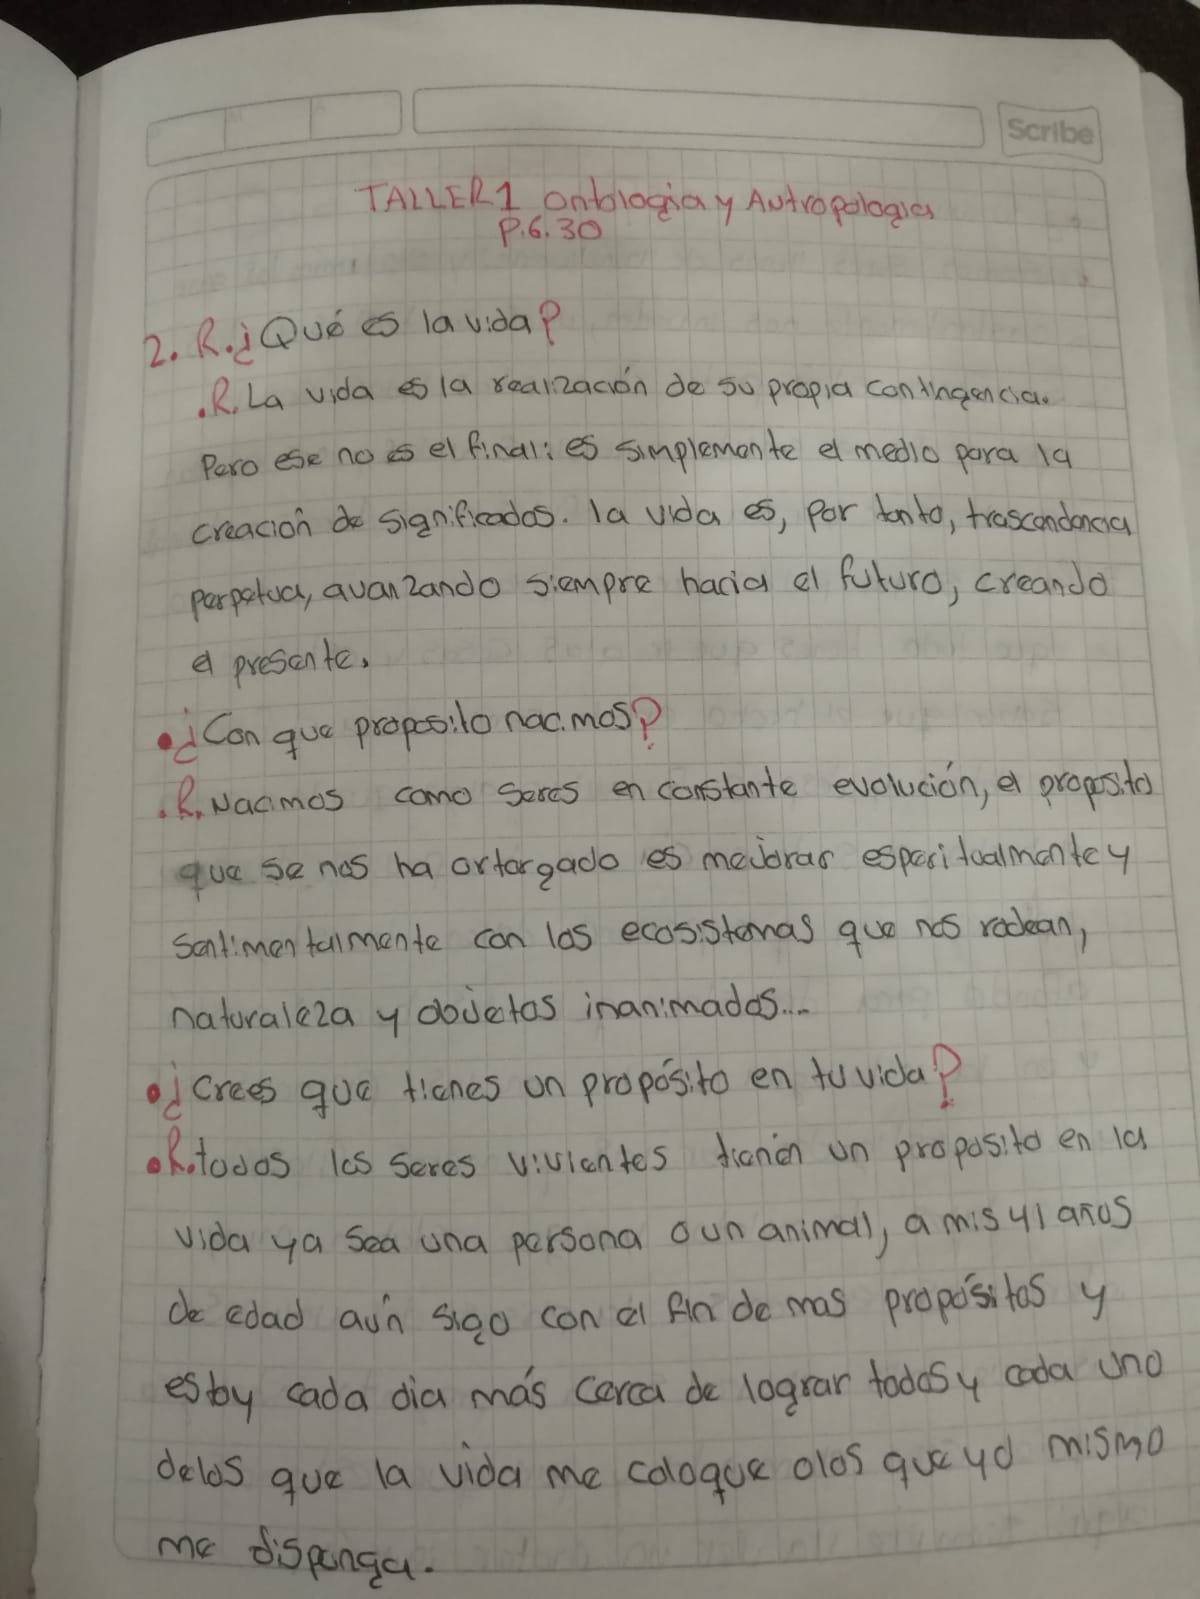 Scribe
TALLER1 Ontologia y Autropologia
P.6.30
2. R.¿Qué es la vida?
.R. La vida es la realización de su propia contingencia.
Pero ese no es el final: es simplemente el medio para la
creación de significados. la vida es, por tanto, trascendencia
perpetua, avanzando siempre hacia el futuro, creando
el presente.
•¿Con que proposito nacimos?
.R. Nacimos como seres en constante evolución, el proposito
que se nos ha ortorgado es mejorar esperitualmente y
sentimentalmente con los ecosistemas que nos rodean,
naturaleza y objetos inanimados...
•¿Crees que tienes un propósito en tu vida?
•R. todos los seres vivientes tienén un proposito en la
vida ya sea una persona o un animal, a mis 41 años
de edad aún sigo con el fin de mas propósitos y
estoy cada dia más cerca de lograr todos y cada uno
delos que la vida me coloque olos que yo mismo
me disponga.